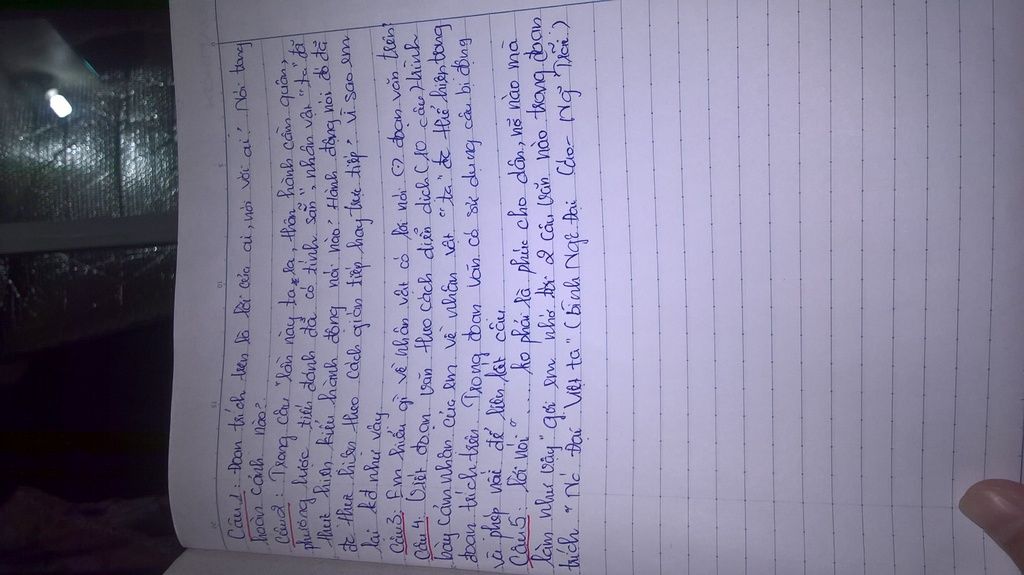 Câu 1: Đoạn trích trên là lời của ai, nói với ai? Nói trong
hoàn cảnh nào?
Câu 2: Trong câu "lần này ta ra, thân hành cầm quân,
phương lược tiến đánh đã có tính sẵn", nhân vật "ta" đã
thực hiện kiểu hành động nói nào? Hành động nói đó đã
đc thực hiện theo cách gián tiếp hay trực tiếp? Vì sao em
lại kđ như vậy
Câu 3: Em hiểu gì về nhân vật có lời nói đoạn văn trên?
Câu 4: Viết đoạn văn theo cách diễn dịch (10 câu) trình
bày cảm nhận của em về nhân vật "ta" đc thể hiện trong
đoạn trích trên. Trong đoạn văn có sử dụng câu bị động
và phép nối để liên kết câu.
Câu 5: lời nói " ......... ko phải là phúc cho dân, nỡ nào mà
làm như vậy" gợi em nhớ tới 2 câu văn nào trong đoạn
trích "Nc Đại Việt ta" (Bình Ngô đại cáo - Ng Trãi)